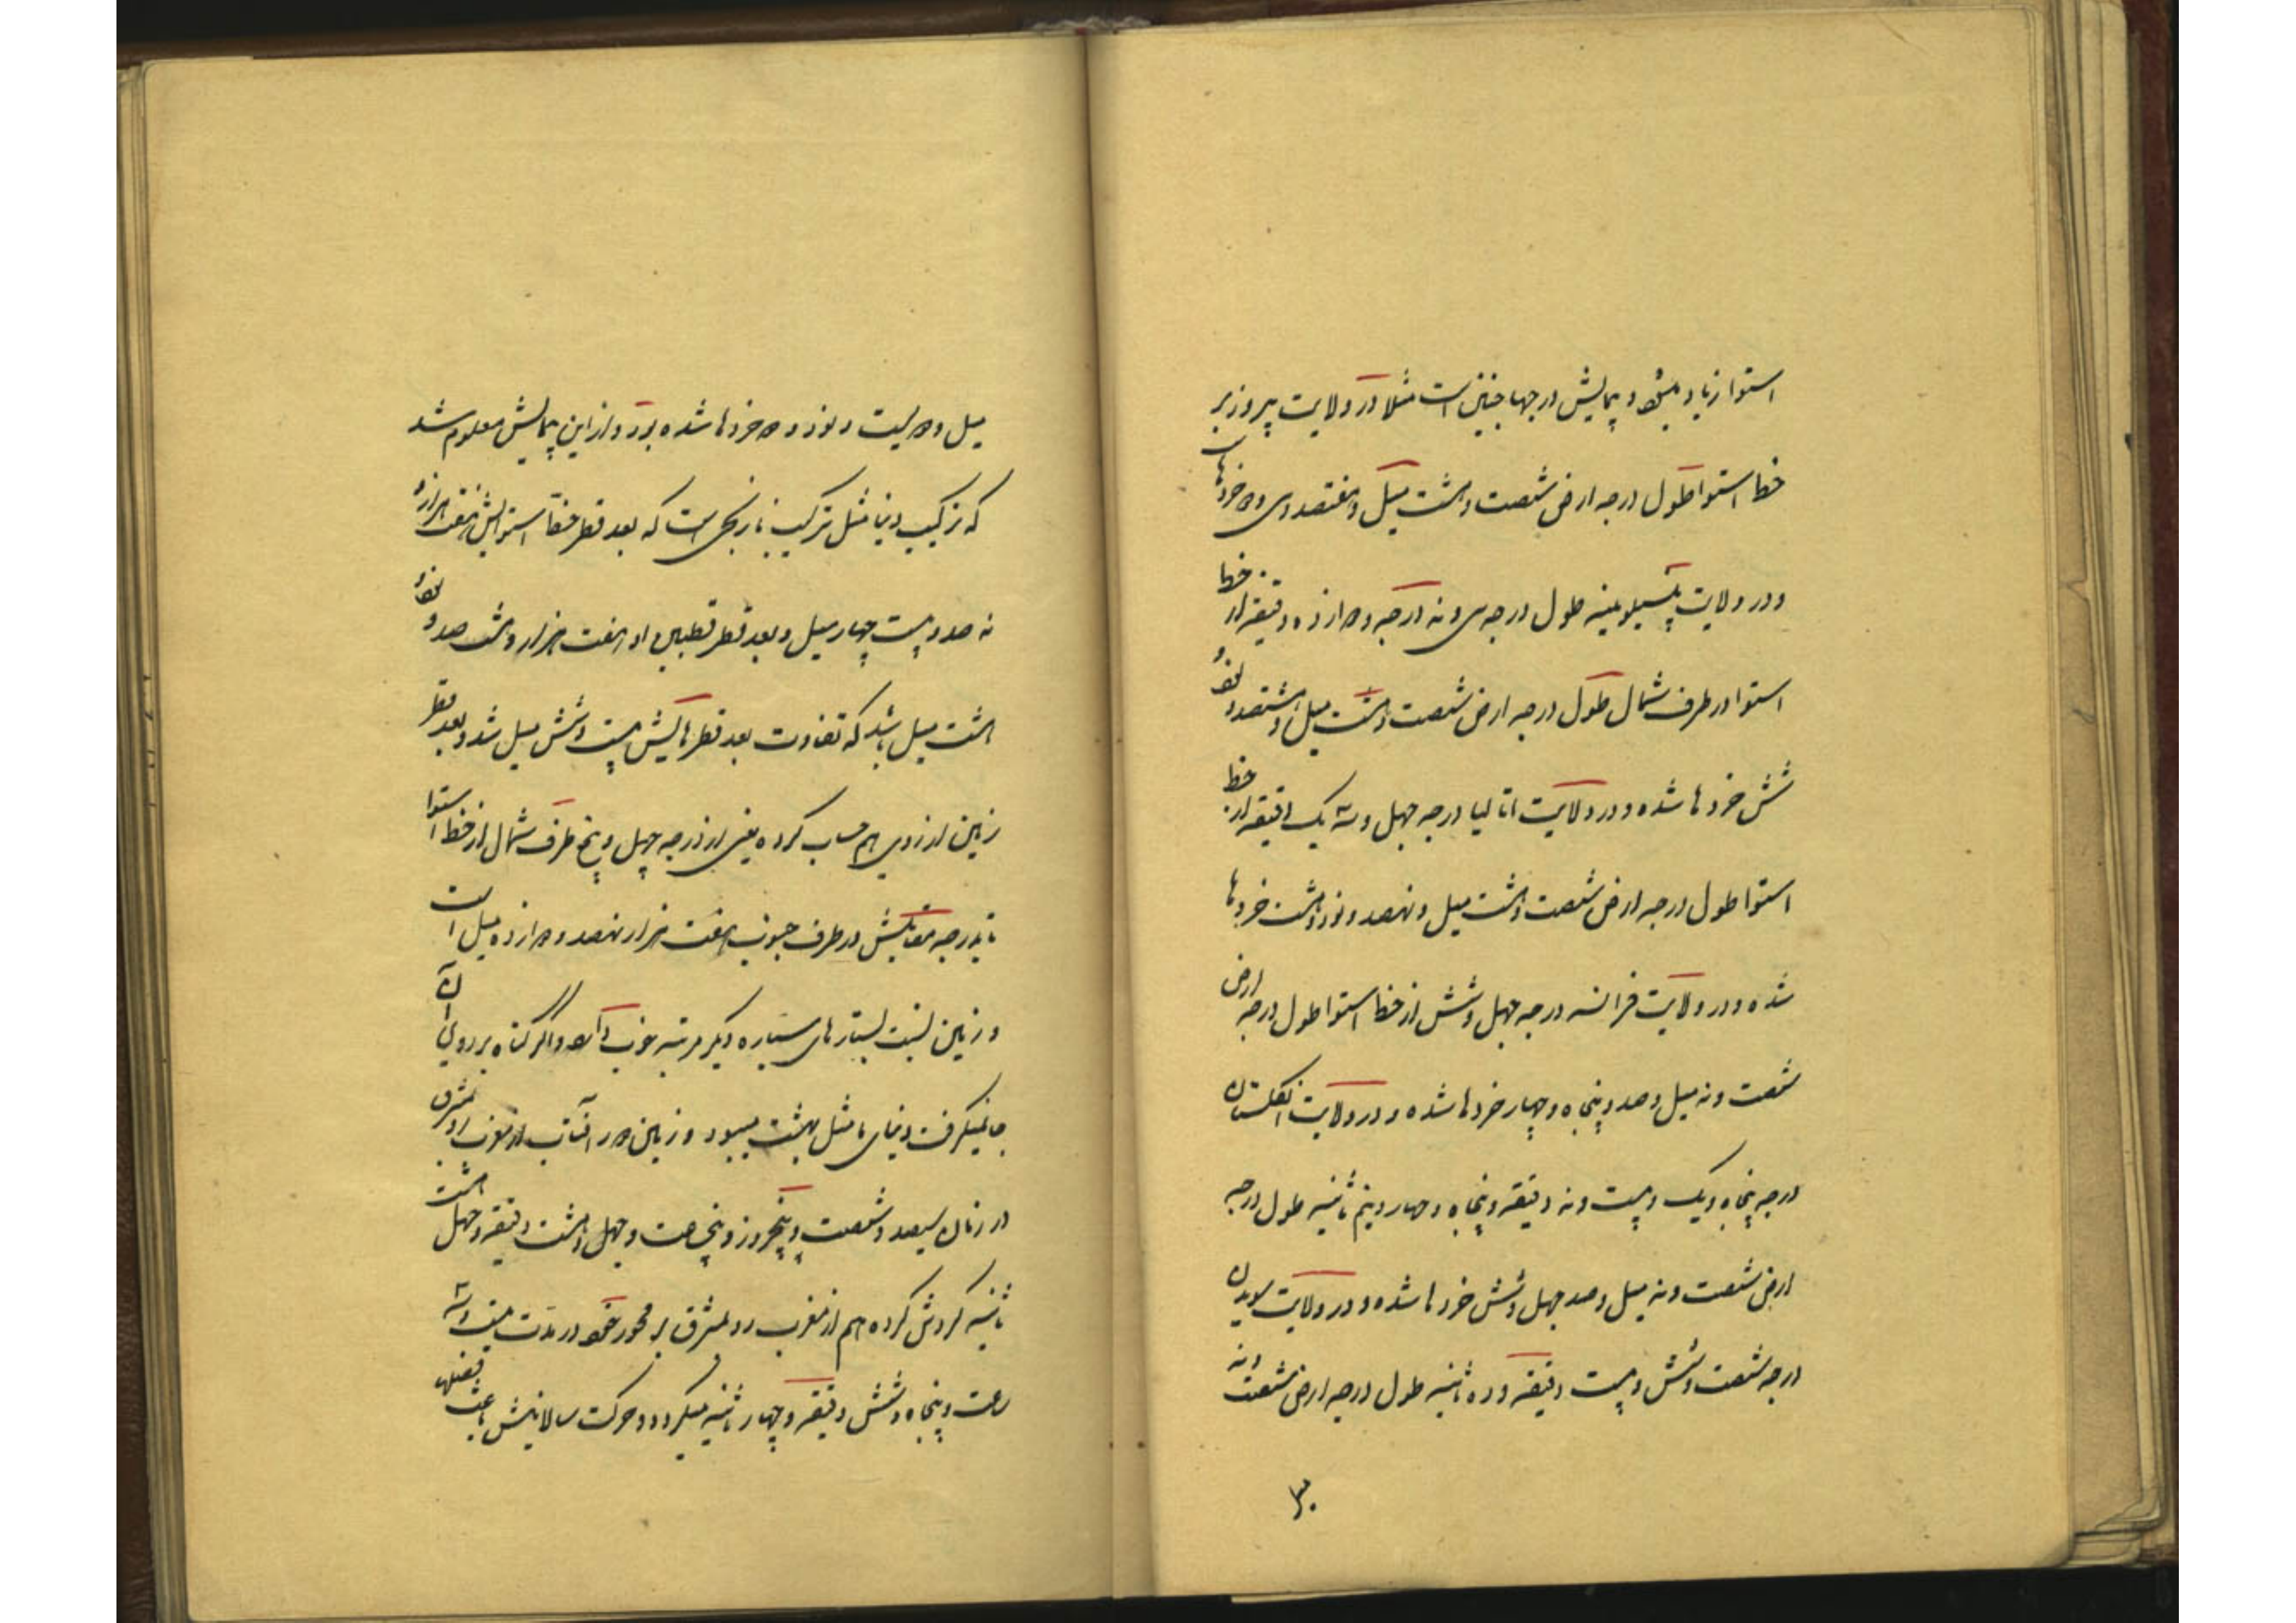 استوا زیاد میشود و پیمایش درجها چنین است مثلا در ولایت پیرو زیر
خط استوا طول درجه ارض شصت و هشت میل و هفتصد و سی و دو خردهاست
و در ولایت پنسیلوینیه طول درجه سی و نه درجه و دوازده دقیقه از خط
استوا در طرف شمال طول درجه ارض شصت و هشت میل و هشتصد و نود و
شش خردها شده و در ولایت اتالیا درجه چهل و سه یک دقیقه از خط
استوا طول درجه ارض شصت و هشت میل و نهصد و نود و هشت خردها
شده و در ولایت فرانسه درجه چهل و شش از خط استوا طول درجه ارض
شصت و نه میل و صد و پنجاه و چهار خردها شده و در ولایت انگلستان
درجه پنجاه و یک و بیست و نه دقیقه و پنجاه و چهار و نیم ثانیه طول درجه
ارض شصت و نه میل و صد چهل و شش خردها شده و در ولایت سویدن
درجه شصت و شش و بیست دقیقه و ده ثانیه طول درجه ارض شصت و نه
۳۰
میل و دویست و نود و دو خردها شده بود و از این پیمایش معلوم شد
که ترکیب دنیا مثل ترکیب نارنجی است که بعد قطر خط استوایش هفت هزار و
نه صد و بیست چهار میل و بعد قطر قطبین او هفت هزار و هشت صد و نود و
هشت میل باشد که تفاوت بعد قطرهایش بیست و شش میل شد و بعد قطر
زمین از روی هم حساب کرده یعنی از درجه چهل و پنج طرف شمال از خط استوا
تا بدرجه مقابلش در طرف جنوب هفت هزار نهصد و دوازده میل است
و زمین نسبت بستارهای سیاره دیگر مرتبه خوب دارد و اگر گناه بر روی آن
جا نمیگرفت دنیای ما مثل بهشت میبود و زمین دور آفتاب از مغرب رو بمشرق
در زمان سیصد و شصت و پنج روز و پنج ساعت و چهل و هشت دقیقه و چهل هشت
ثانیه گردش کرده هم از مغرب رو بمشرق بر محور خود در مدت بیست و سه
ساعت و پنجاه و شش دقیقه و چهار ثانیه میگردد و حرکت سالانیش باعث فصلها